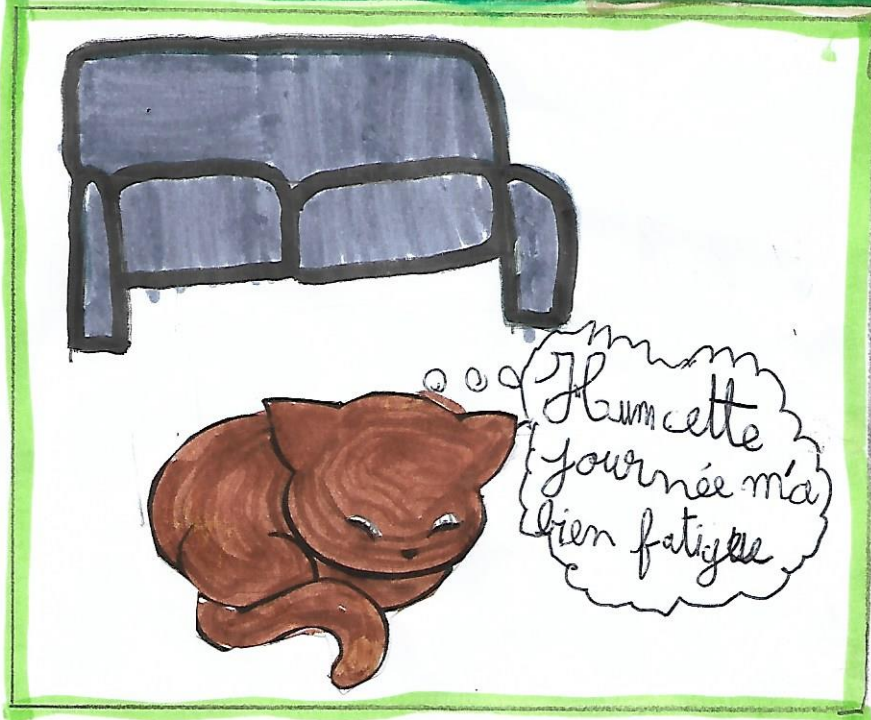 Hum cette
journée m'a
bien fatigué